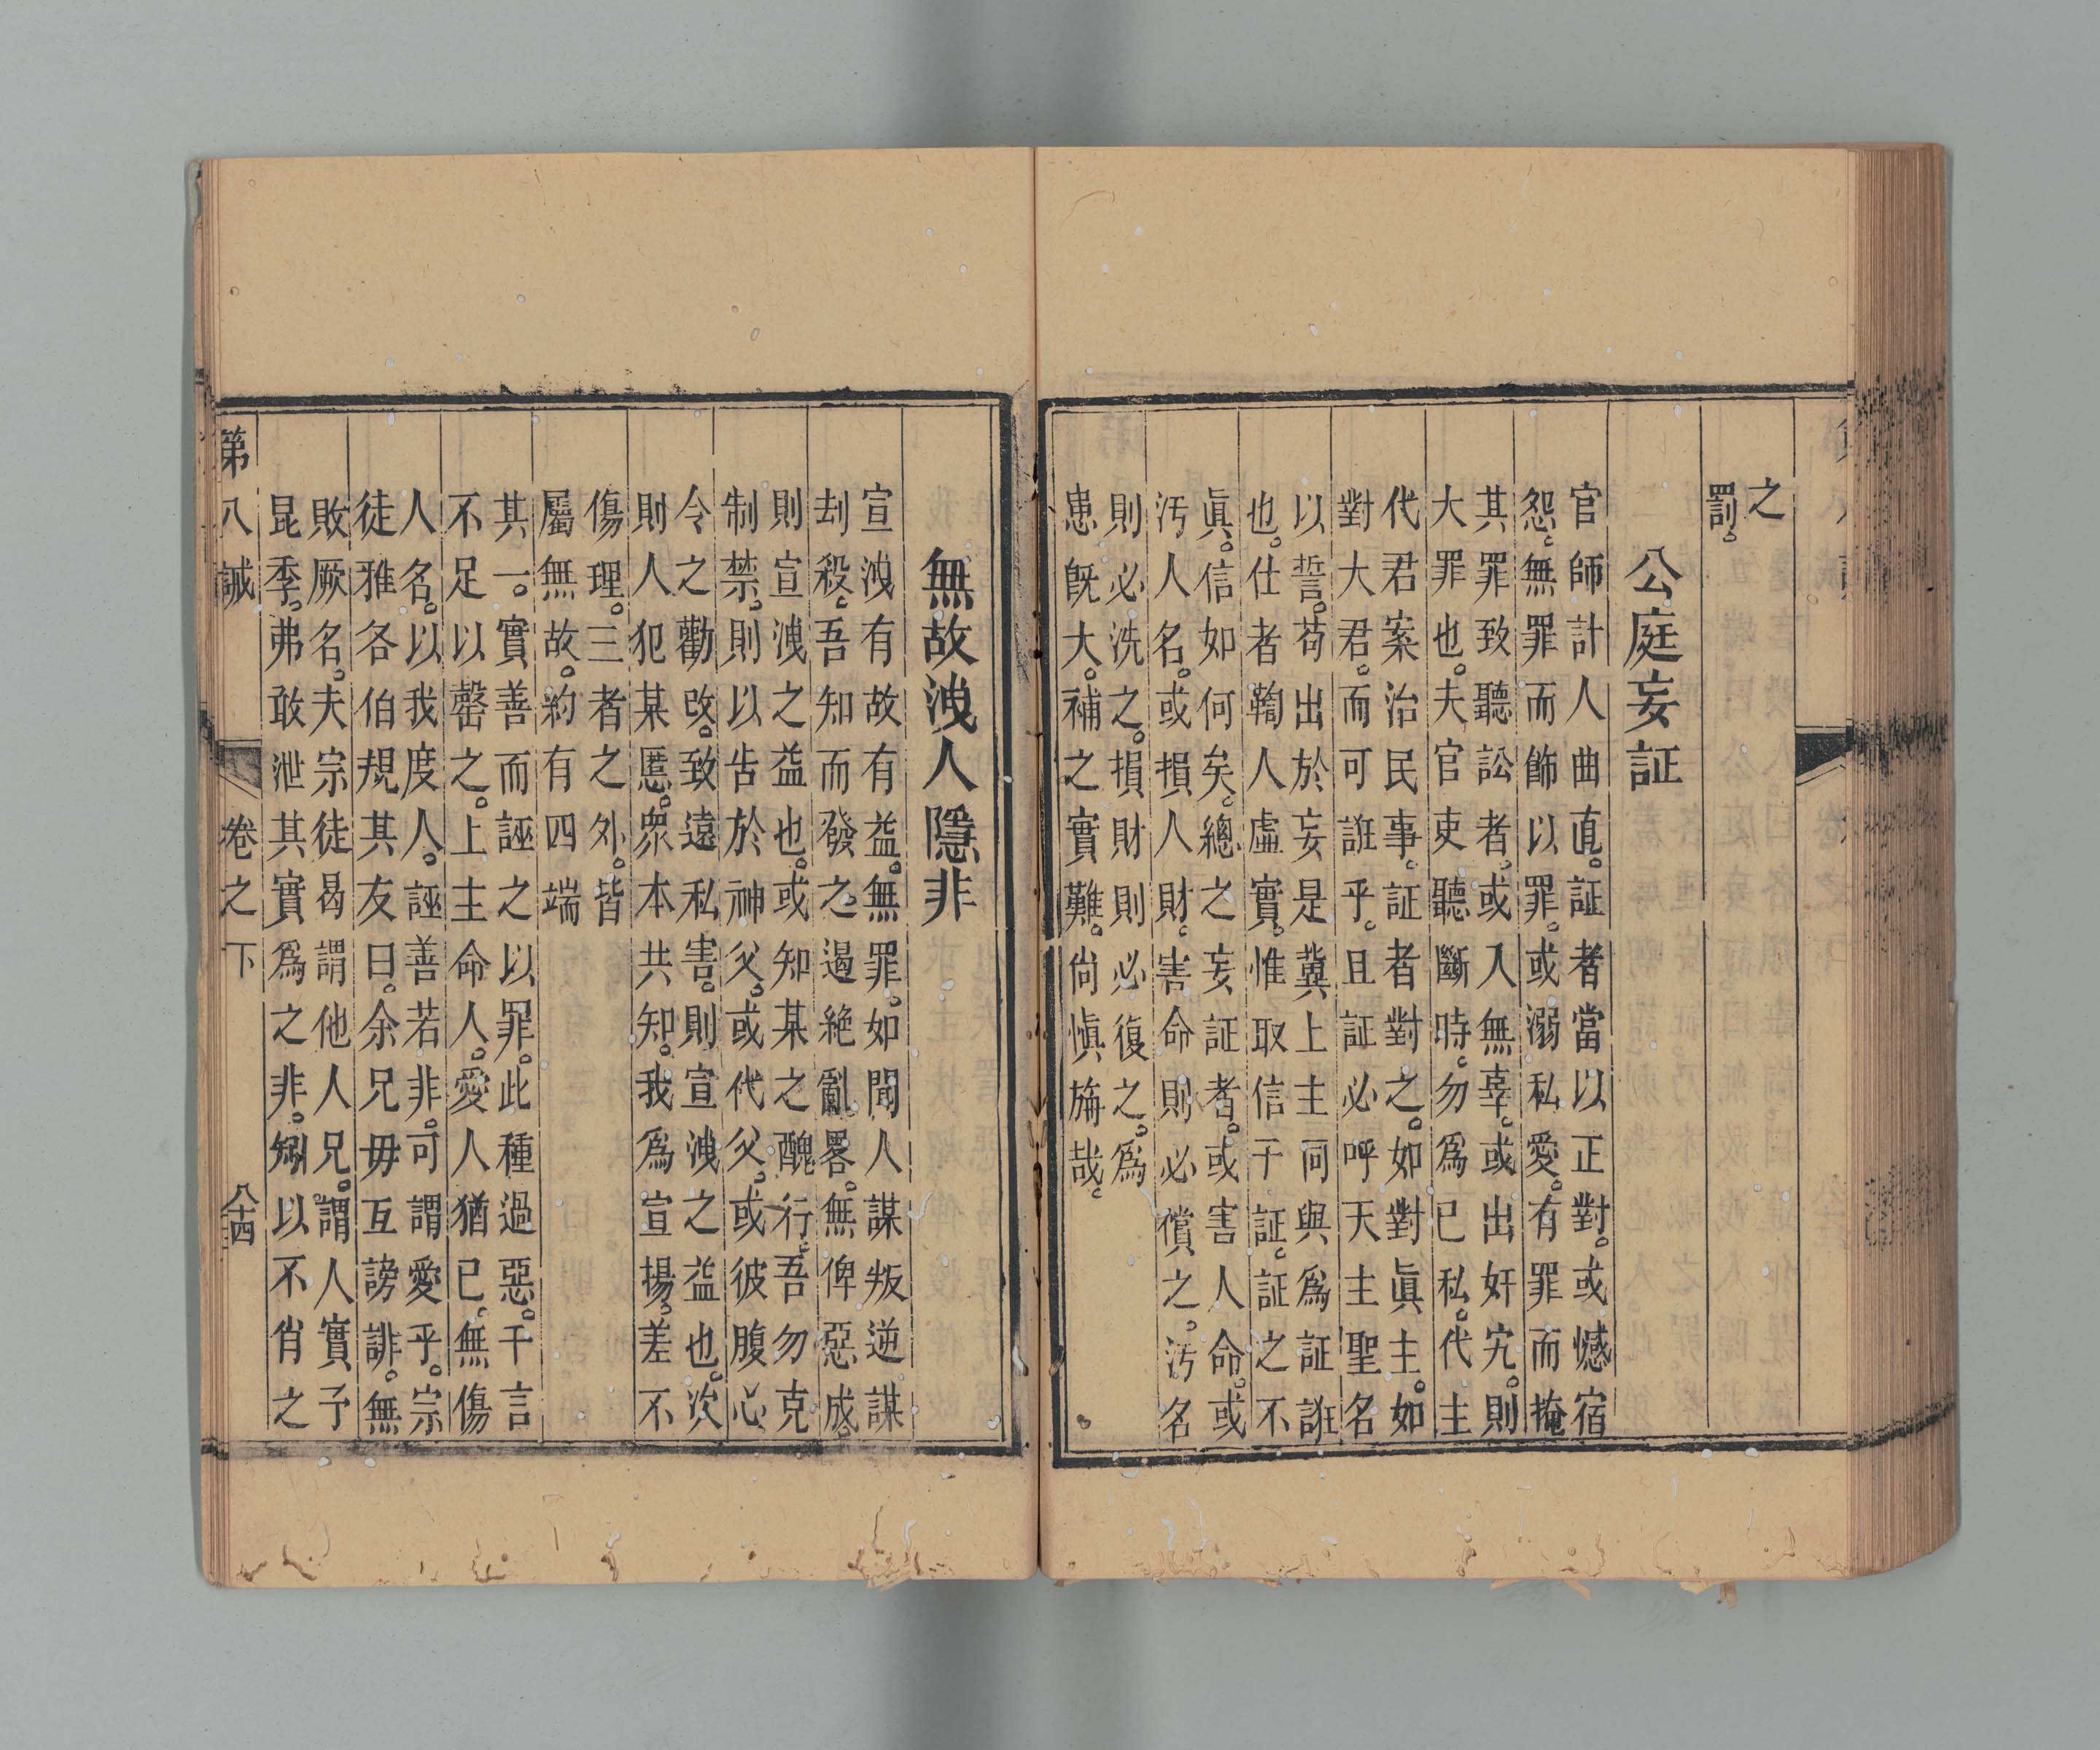 之
罰。
公庭妄証
官師計人曲直。証者當以正對。或憾宿
怨。無罪而飾以罪。或溺私愛。有罪而掩
其罪致聽訟者。或入無辜。或出奸宄。則
大罪也。夫官吏聽斷時。勿爲已私。代主
代君案治民事。証者對之。如對眞主。如
對大君。而可誑乎。且証必呼天主聖名
以誓。苟出於妄是冀上主同與爲証誑
也。仕者鞫人虛實。惟取信于証。証之不
眞。信如何矣。總之妄証者。或害人命。或
汚人名。或損人財。害命則必償之。汚名
則必洗之。損財則必復之。爲
患旣大。補之實難。尙愼旃哉。
無故洩人隱非
宣洩有故有益。無罪。如聞人謀叛逆謀
刦殺。吾知而發之。遏絶亂畧。無俾惡成。
則宣洩之益也。或知某之醜行。吾勿克
制禁。則以告於神父。或代父。或彼腹心
令之勸改。致遠私害。則宣洩之益也。次
則人犯某慝。衆本共知。我爲宣揚。差不
傷理。三者之外。皆
屬無故。約有四端
其一。實善而誣之以罪。此種過惡。干言
不足以罄之。上主命人。愛人猶已。無傷
人名。以我度人。誣善若非。可謂愛乎。宗
徒雅各伯規其友曰。余兄毋互謗誹。無
敗厥名。夫宗徒曷謂他人兄。謂人實予
昆季。弗敢泄其實爲之非。矧以不肖之
第八誡 卷之下 八十四